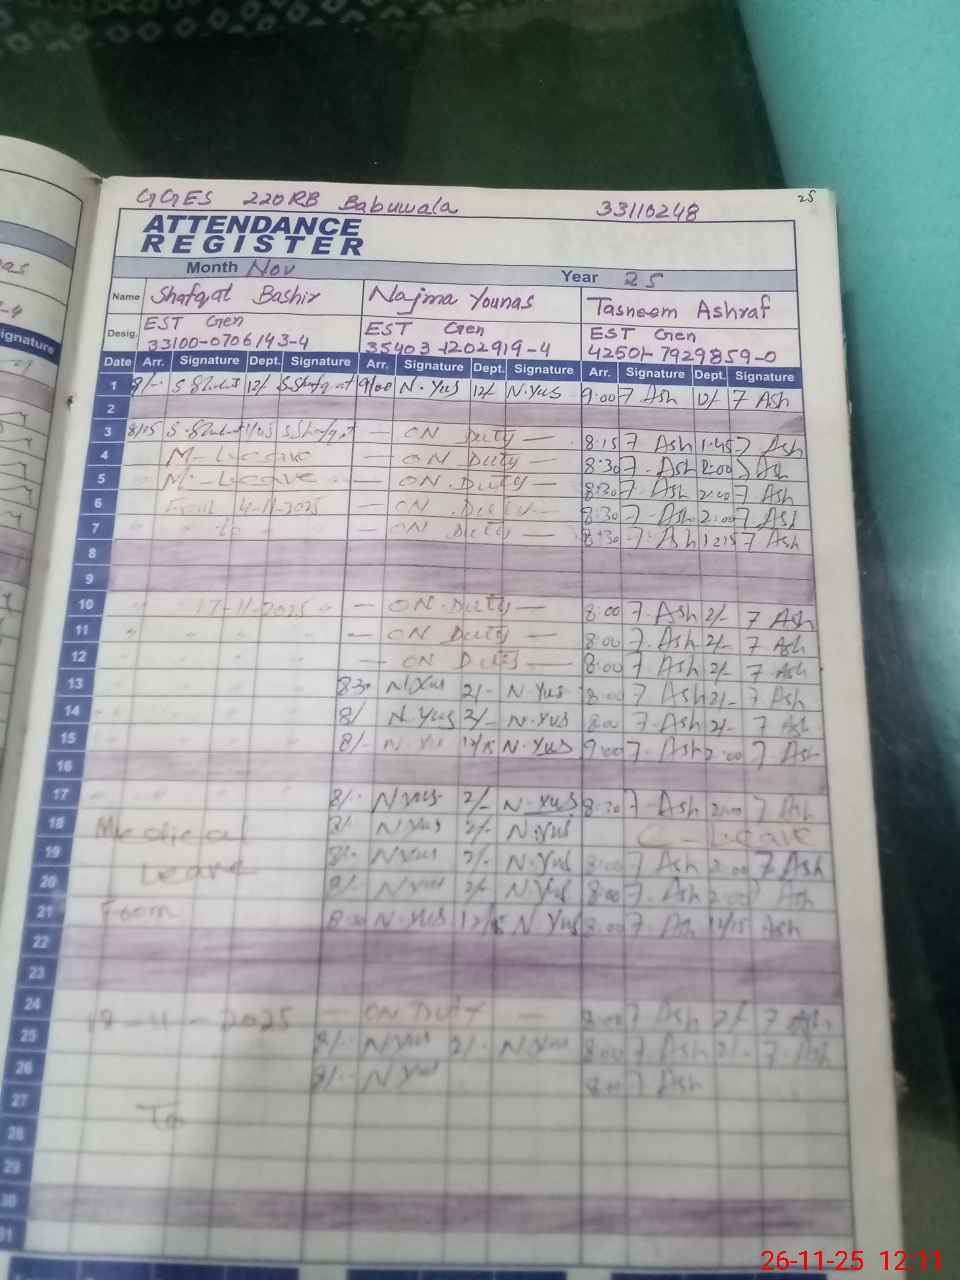 GGES 220RB Babuwala 33110248
25
ATTENDANCE
REGISTER
Month Nov Year 25
Name Shafqat Bashir Najma Younas Tasneem Ashraf
Desig. EST Gen EST Gen EST Gen
33100-0706143-4 35403-1202919-4 42501-7929859-0
Date Arr. Signature Dept. Signature Arr. Signature Dept. Signature Arr. Signature Dept. Signature
1 8/- 12/ S.Shafqat 9/00 N.Yus 12/ N.Yus 9:00 7 Ash 12/ 7 Ash
2
3 8/15 S.Shafqat — ON Duty — 8:15 7 Ash 1:45 7 Ash
4 M-Leave — ON Duty — 8:30 7-Ash 2:00 7 Ash
5 M-Leave — ON Duty — 8:30 7 Ash 2:00 7 Ash
6 From 4-11-2025 — ON Duty — 8:30 7-Ash 2:00 7 Ash
7 to — ON Duty — 8:30 7-Ash 1215 7 Ash
8
9
10 17-11-2025 — ON Duty — 8:00 7-Ash 2/- 7 Ash
11 — ON Duty — 8:00 7-Ash 2/- 7 Ash
12 — ON Duty — 8:00 7 Ash 2/- 7 Ash
13 830 N.Yus 2/- N.Yus 8:00 7 Ash 2/- 7 Ash
14 8/ N.Yus 2/- N.Yus 8:00 7-Ash 2/- 7 Ash
15 8/- N.Yus 12/15 N.Yus 9:00 7-Ash 2:00 7-Ash
16
17 8/- N.Yus 2/- N.Yus 8:30 7-Ash 2:00 7 Ash
18 Medical 8/- N.Yus 2/- N.Yus C-Leave
19 Leave 8/- N.Yus 2/- N.Yus 8:00 7 Ash 2:00 7 Ash
20 8/- N.Yus 2/- N.Yus 8:00 7 Ash 2:00 7 Ash
21 From 8:30 N.Yus 12/15 N.Yus 8:00 7-Ash 12/15 Ash
22
23
24 18-11-2025 — ON DUTY — 8:00 7 Ash 2/ 7 Ash
25 8/- N.Yus 2/- N.Yus 8:00 7-Ash 2/- 7-Ash
26 8/- N.Yus 8:00 7 Ash
27 To
28
29
30
31
26-11-25 12:11